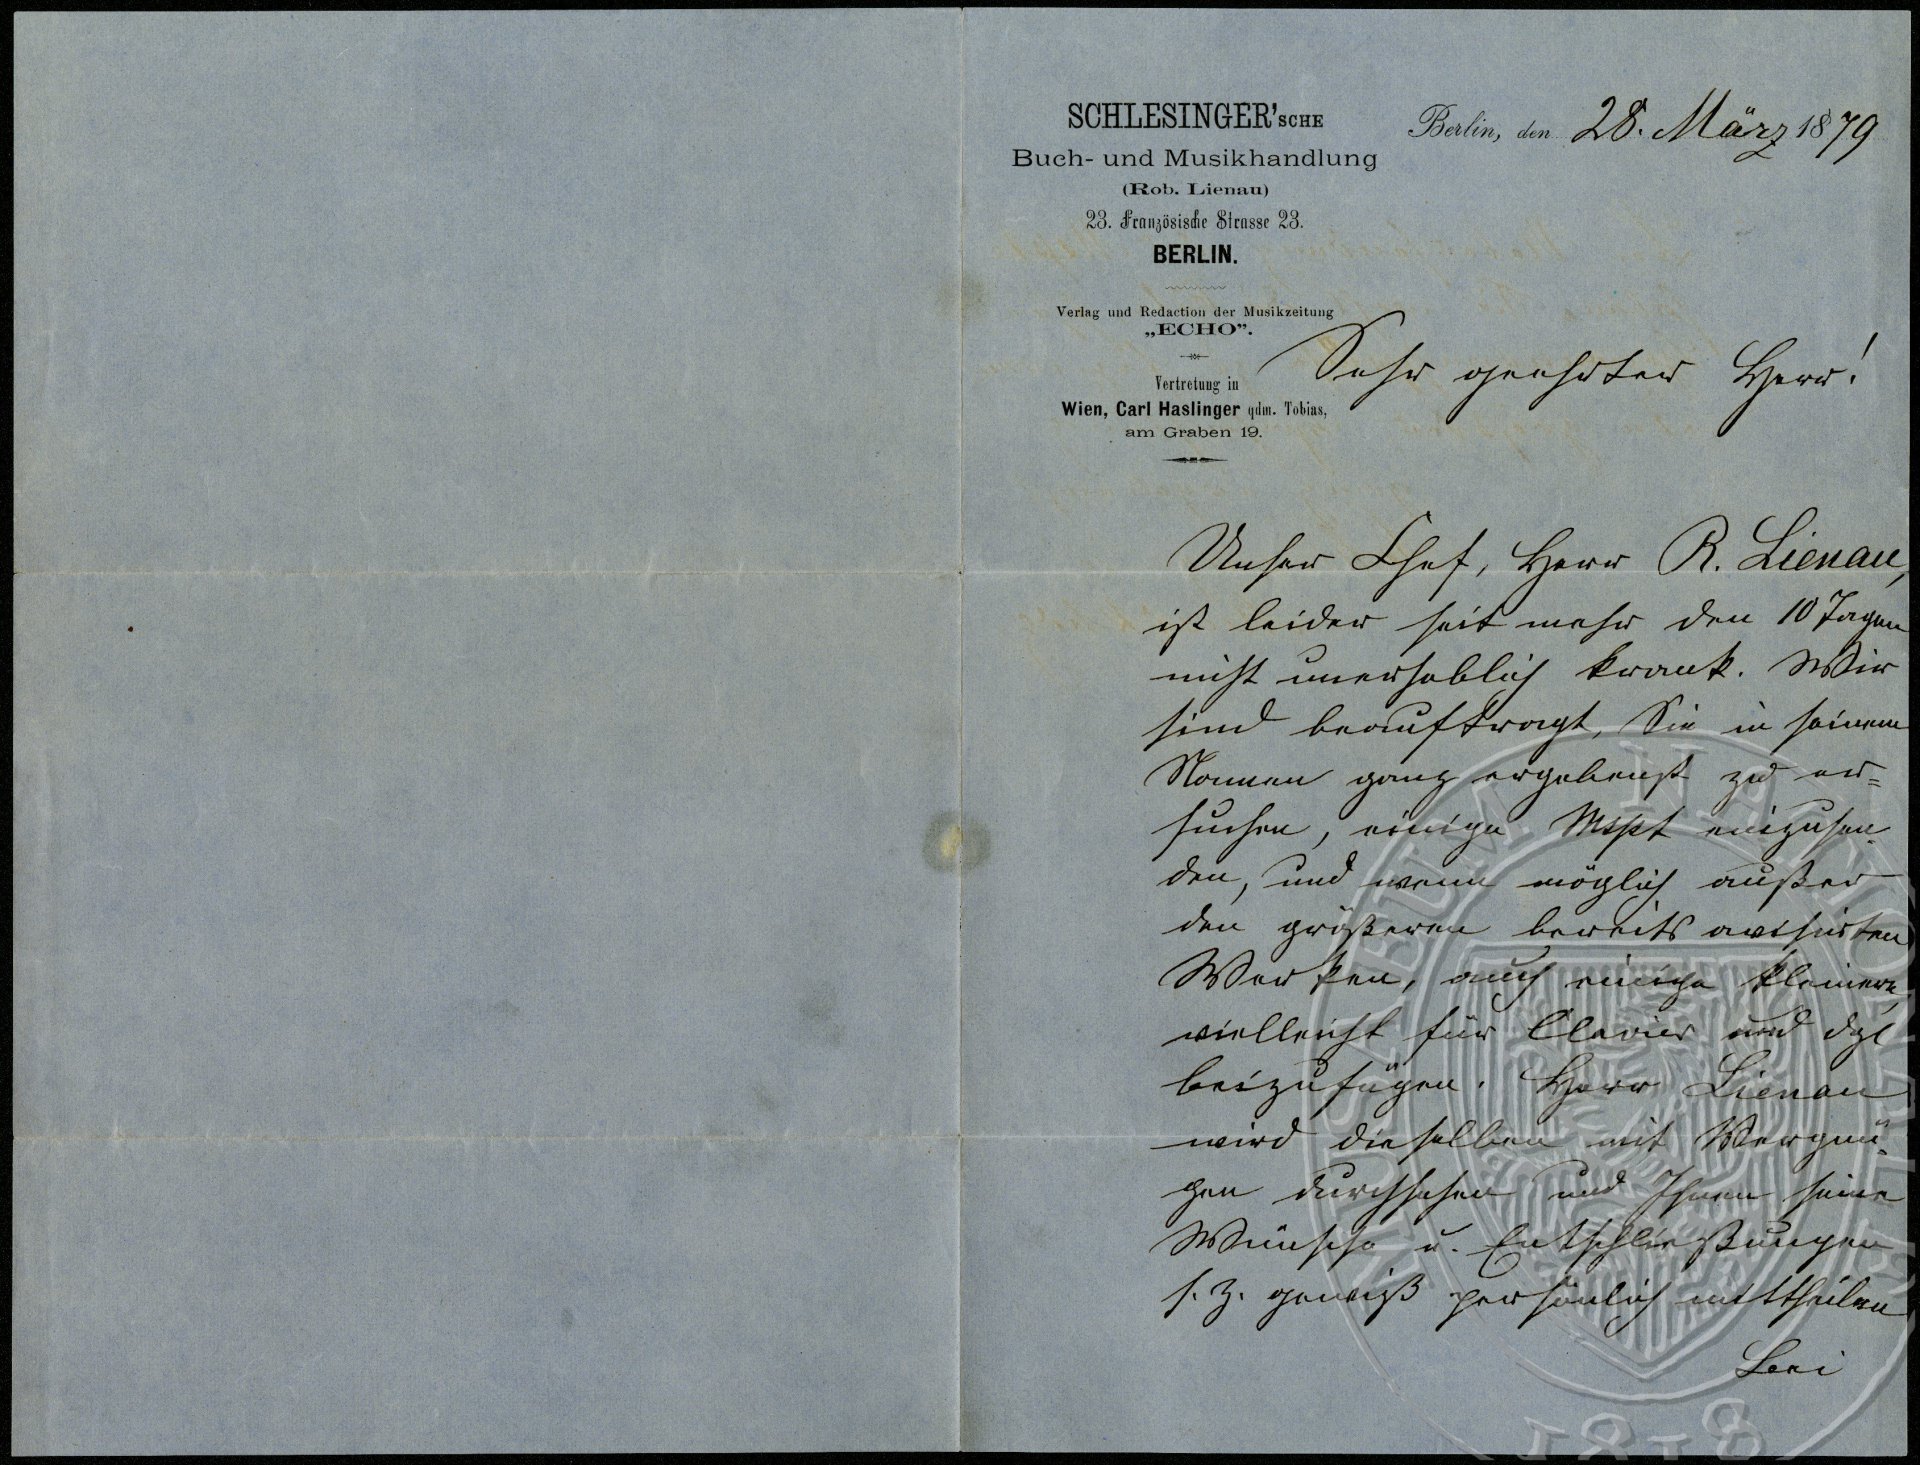 SCHLESINGER'SCHE
Buch- und Musikhandlung
(Rob. Lienau)
23. Französische Strasse 23.
BERLIN.
Verlag und Redaction der Musikzeitung
„ECHO”.
Vertretung in
Wien, Carl Haslinger qdm. Tobias,
am Graben 19.
Berlin, den 28. März 1879
Sehr geehrter Herr!
Unser Chef, Herr R. Lienau,
ist leider seit mehr den 10 Tagen
nicht unerheblich krank. Wir
sind beauftragt, Sie in seinem
Namen ganz ergebenst zu er=
suchen, einige Mspt einzusen-
den, und wenn möglich außer
den größeren bereits avisirten
Werken, auch einige kleinere,
vielleicht für Clavier und dgl
beizufügen. Herr Lienau
wird dieselben mit Vergnü-
gen durchsehen und Ihnen seine
Wünsche u. Entschließungen
s. Z. gewiß persönlich mittheilen
Bei
1818